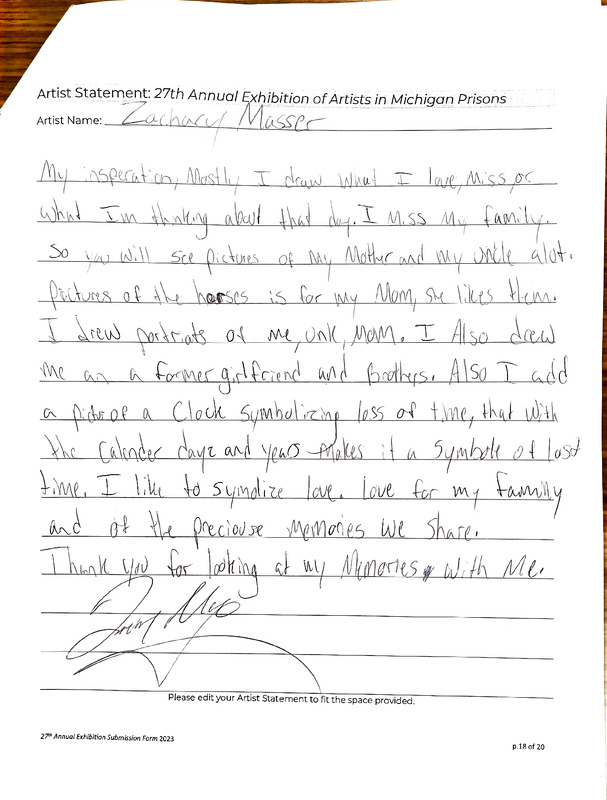 Artist Statement: 27th Annual Exhibition of Artists in Michigan Prisons
Artist Name: Zachary Masser
My insperation, Mostly I draw what I love, Miss, or
what Im thinking about that day. I Miss My family.
So you will see pictures of my Mother and my uncle alot.
pictures of the horses is for my Mom, she likes them.
I drew portriats of me, unk, Mom. I Also drew
me an a former girlfriend and Brothers. Also I add
a pictur of a Clock Symbolizing loss of time, that with
the Calender dayz and years makes it a Symbole of lost
time. I like to symolize love. Love for my family
and of the preciouse Memories we share.
Thank you for looking at my Memories with Me.
Please edit your Artist Statement to fit the space provided.
27th Annual Exhibition Submission Form 2023
p.18 of 20